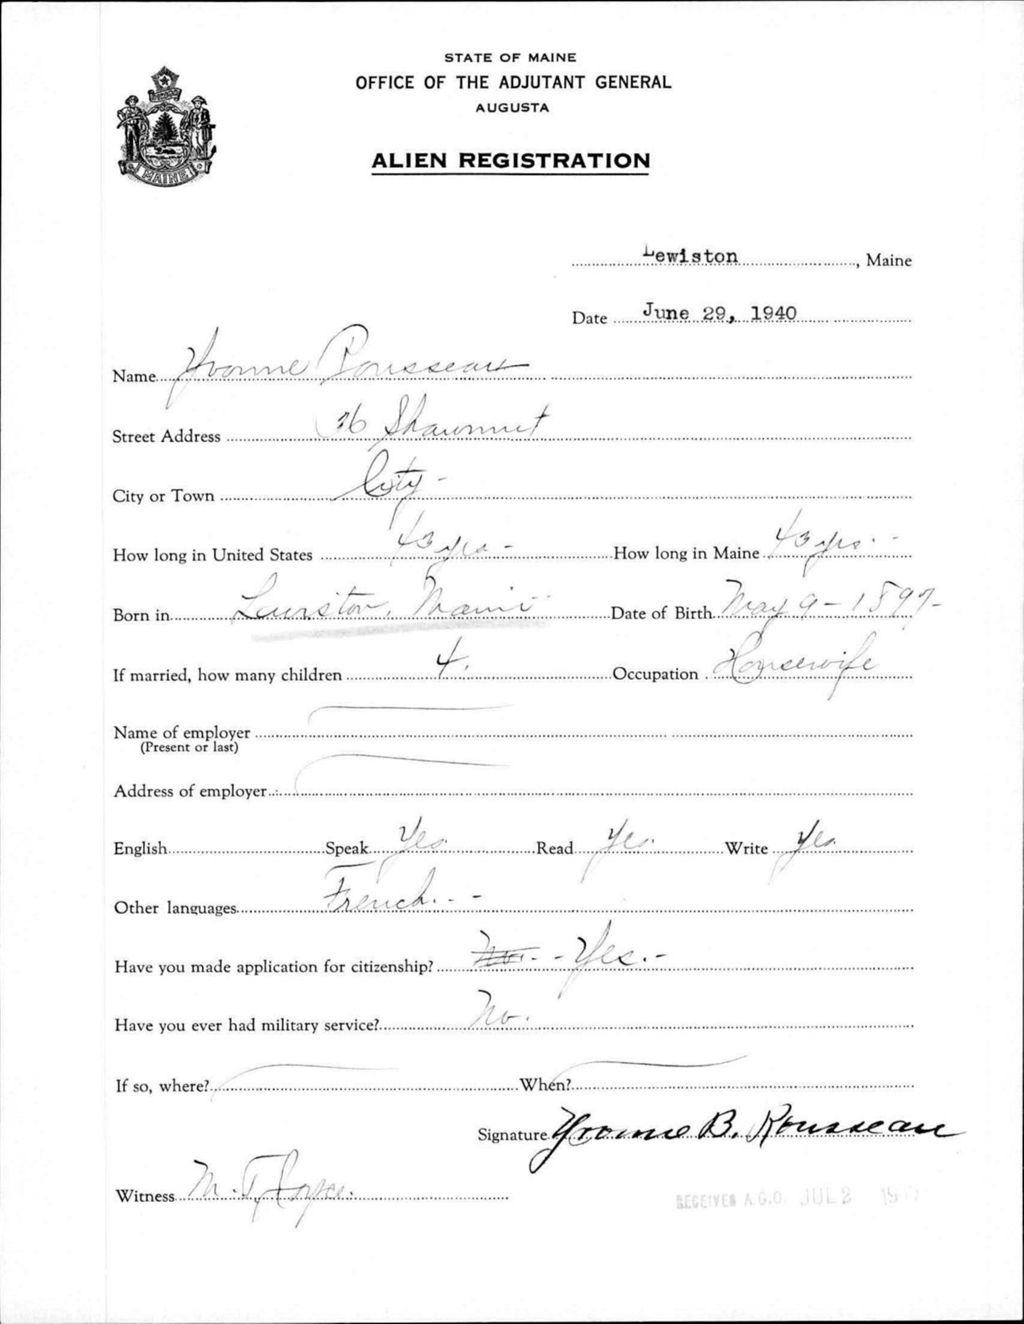 STATE OF MAINE
OFFICE OF THE ADJUTANT GENERAL
AUGUSTA
ALIEN REGISTRATION
MAINE
Lewiston, Maine
Date June 29, 1940
Name Yvonne Rousseau
Street Address 36 Shawmut
City or Town City -
How long in United States 43 yrs - How long in Maine 43 yrs. -
Born in Lewiston, Maine Date of Birth May 9 - 1897 -
If married, how many children 4. Occupation Housewife
Name of employer
(Present or last)
Address of employer
English Speak Yes. Read Yes. Write Yes
Other languages French. - -
Have you made application for citizenship? No. - - Yes. -
Have you ever had military service? No.
If so, where? When?
Signature Yvonne B. Rousseau
Witness M. T. Joyce.
RECEIVED A.G.O. JUL 2